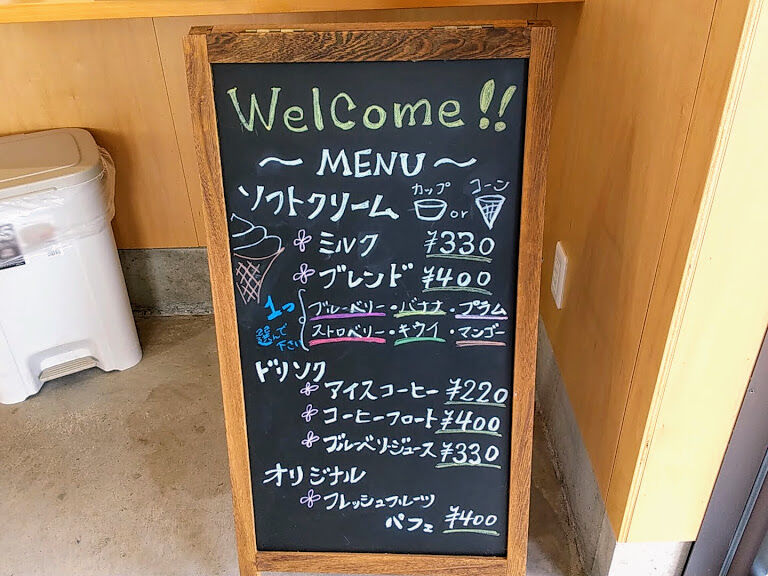 Welcome!!
〜 MENU 〜
ソフトクリーム カップ or コーン
ミルク ¥330
ブレンド ¥400
1つ選んで下さい
ブルーベリー・バナナ・プラム
ストロベリー・キウイ・マンゴー
ドリンク
アイスコーヒー ¥220
コーヒーフロート ¥400
ブルーベリージュース ¥330
オリジナル
フレッシュフルーツ
パフェ ¥400